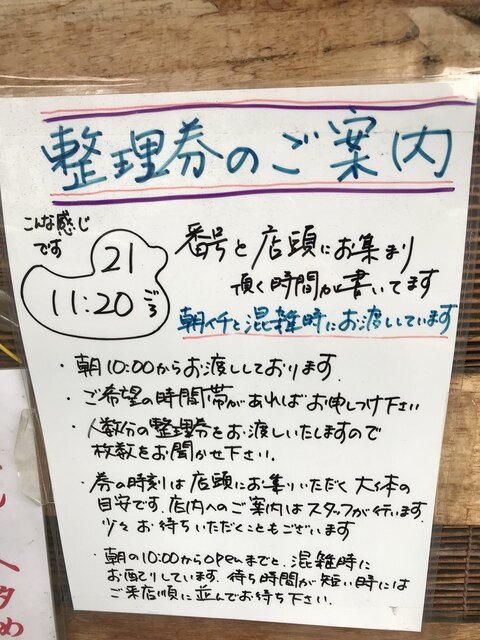 整理券のご案内
こんな感じ
です
21
11:20ごろ
番号と店頭にお集まり
頂く時間が書いてます
朝イチと混雑時にお渡ししています
・朝10:00からお渡ししております
・ご希望の時間帯があればお申しつけ下さい
・人数分の整理券をお渡しいたしますので
枚数をお聞かせ下さい.
・券の時刻は店頭にお集りいただく大体の
目安です.店内へのご案内はスタッフが行います.
少々お待ちいただくこともございます
・朝の10:00からopenまでと、混雑時に
お配りしています.待ち時間が短い時には
ご来店順に並んでお待ち下さい.